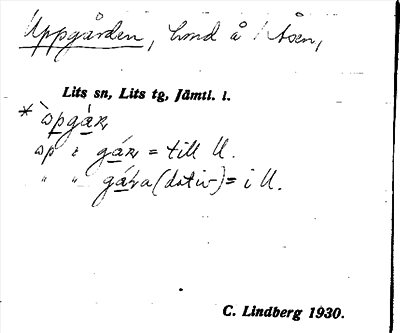 Uppgården, hmd å Åsen,
Lits sn, Lits tg, Jämtl. l.
* `ɯpgár,
ɯp i gár, = till U.
" " gára (dativ) = i U.
C. Lindberg 1930.